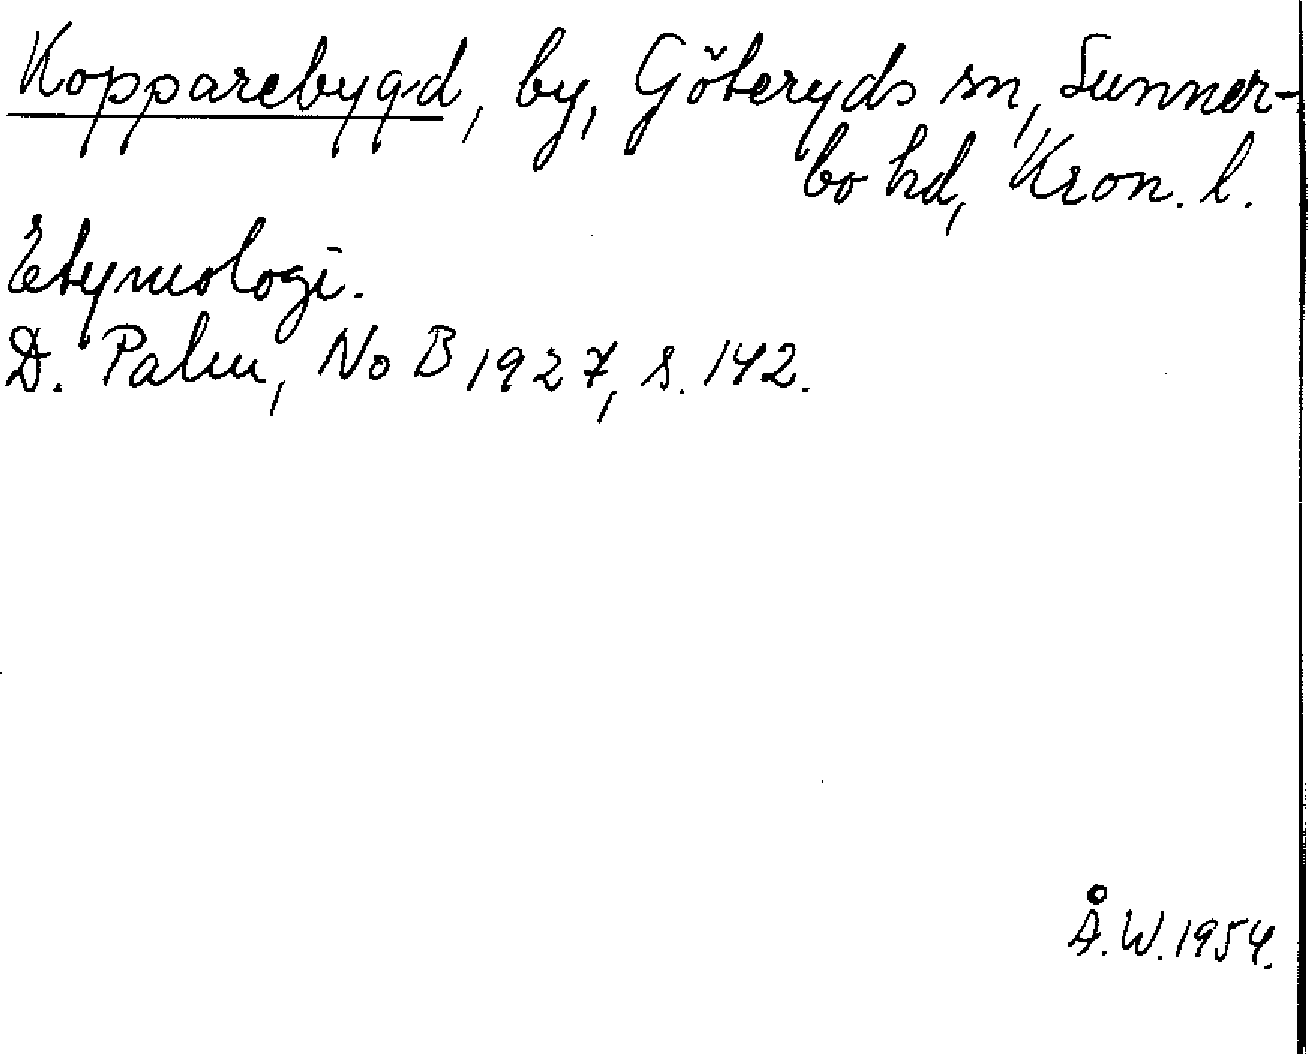 Kopparebygd, by, Göteryds sn, Sunner-
bo hd, Kron. l.
Etymologi.
D. Palm, NoB 1927, s. 142.
Å.W. 1954.